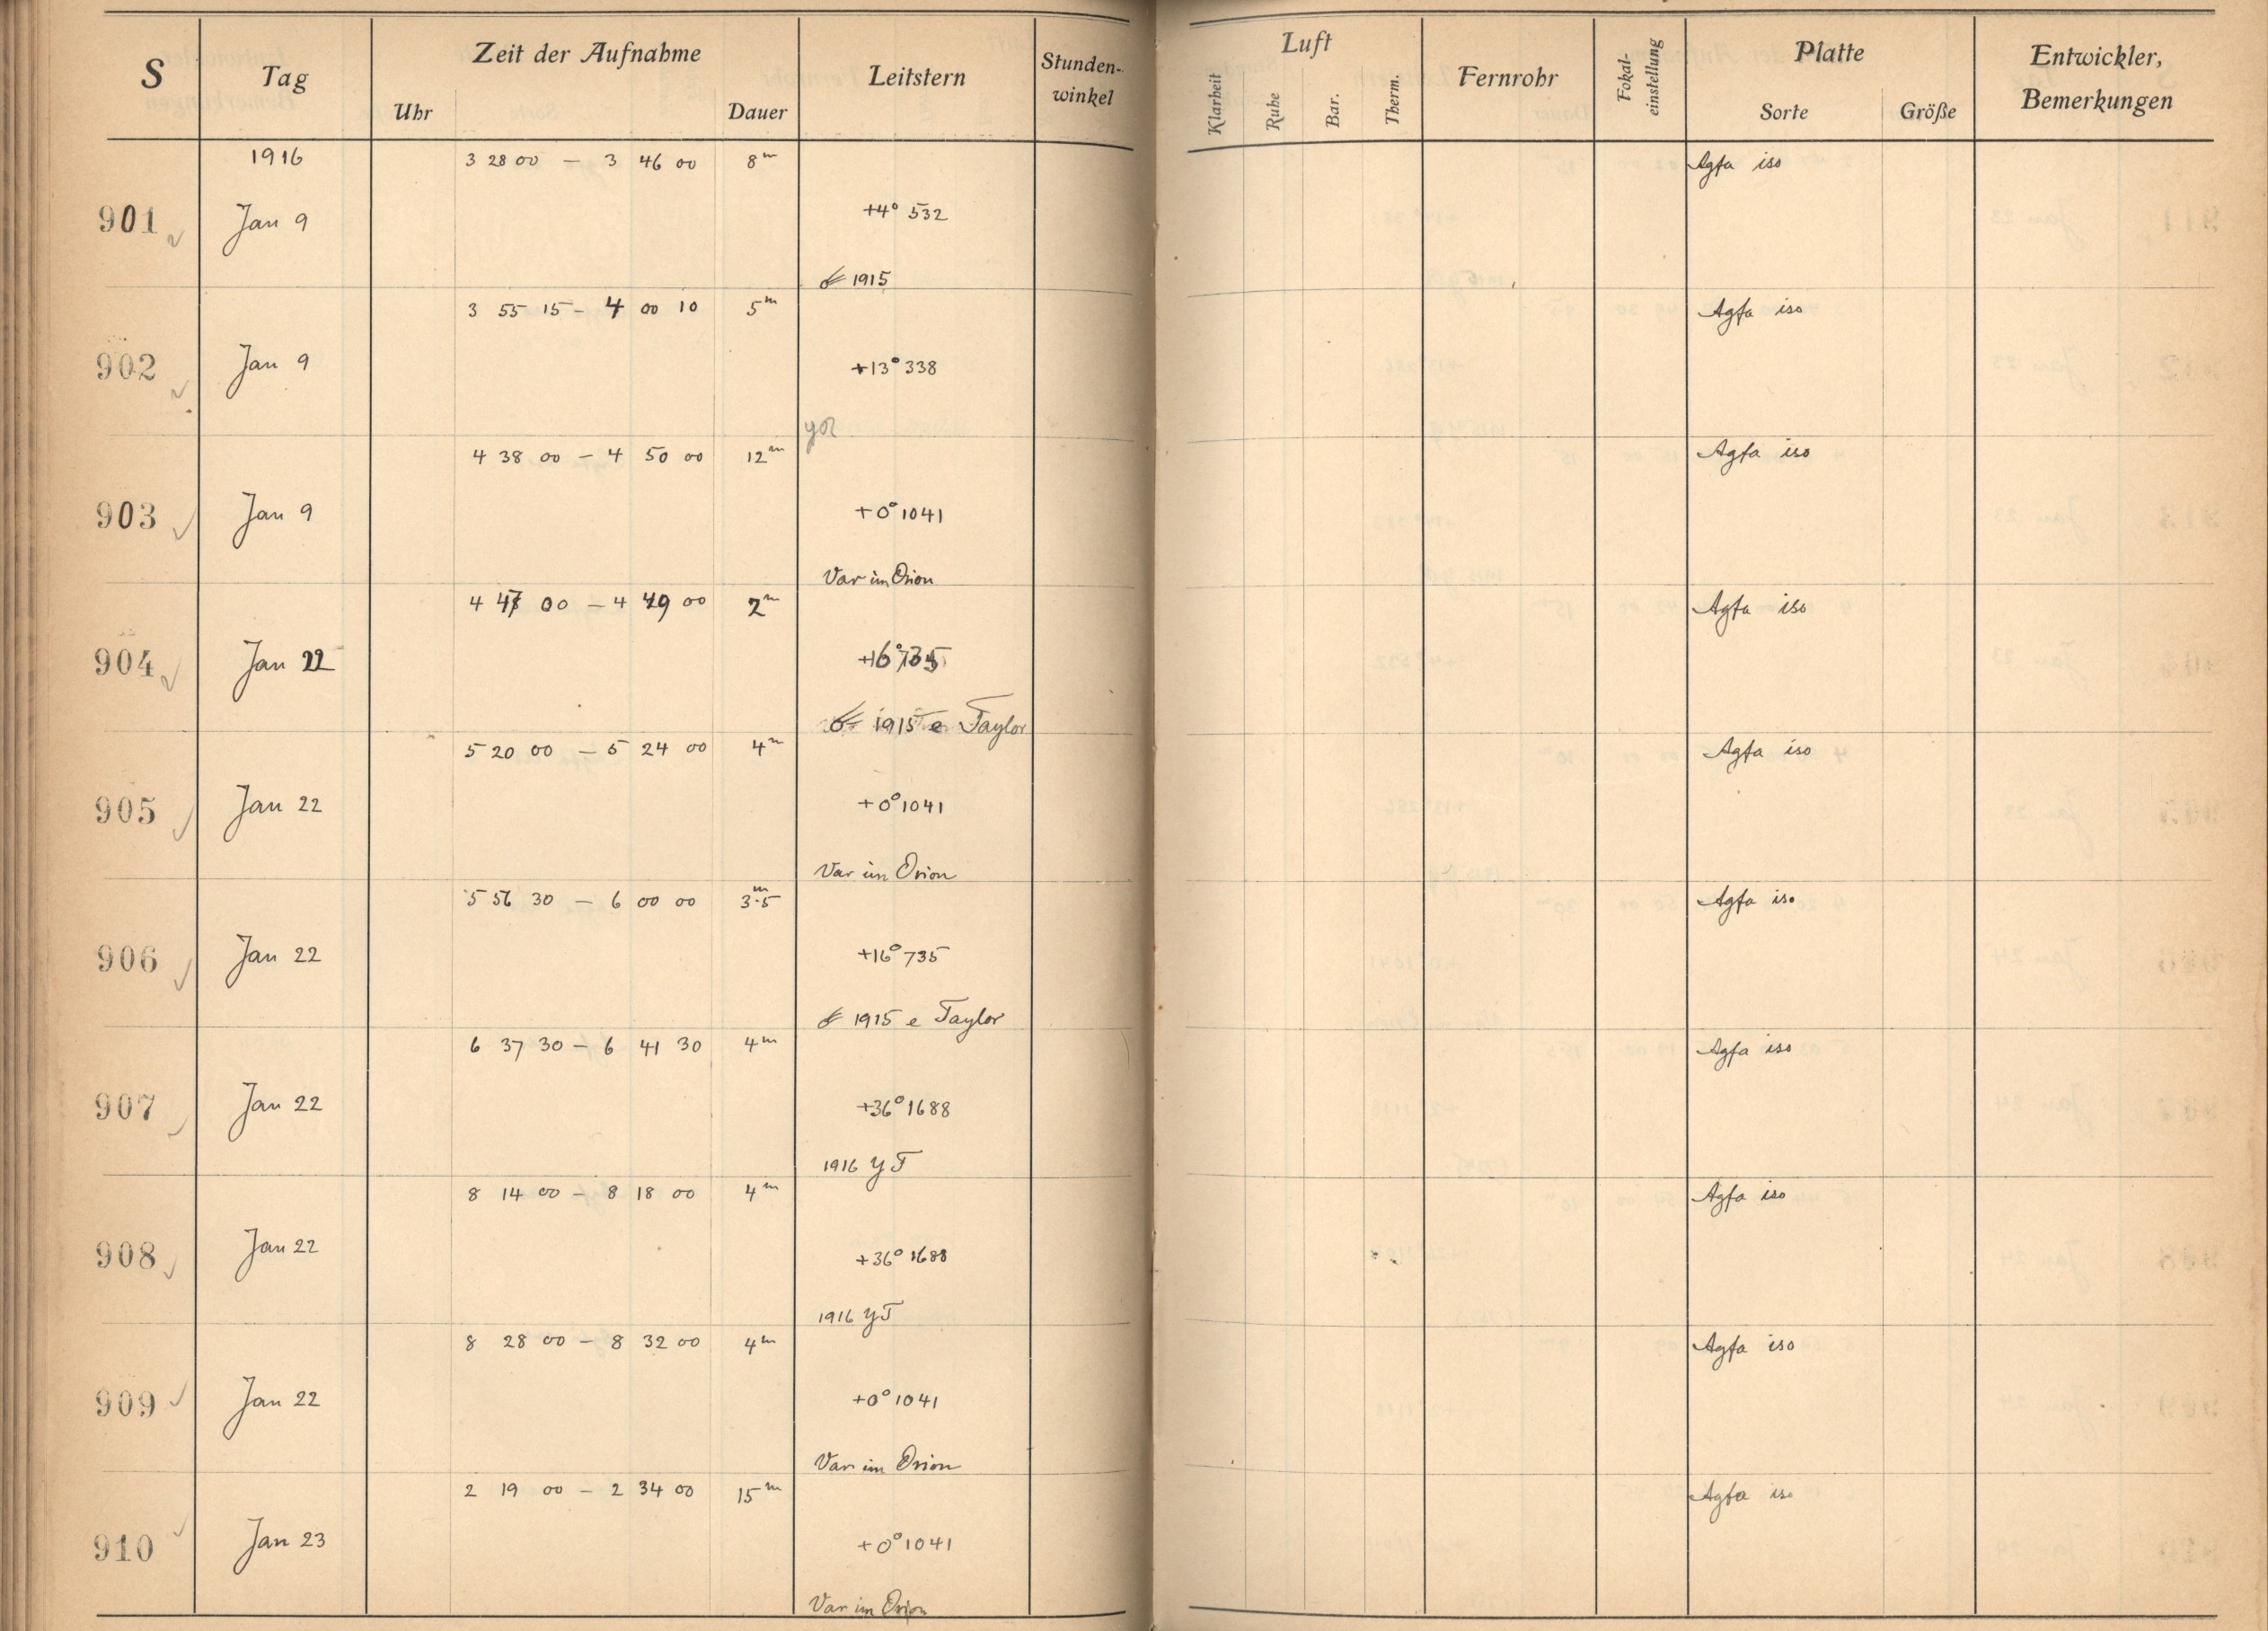 S Tag Zeit der Aufnahme Leitstern Stunden-winkel Luft Fernrohr Fokal-einstellung Platte Entwickler, Bemerkungen
Uhr Dauer Klarheit Ruhe Bar. Therm. Sorte Größe
1916 3 28 00 — 3 46 00 8m Agfa iso
901 Jan 9 +4° 532
1915
3 55 15 — 4 00 10 5m Agfa iso
902 Jan 9 +13° 338
4 38 00 — 4 50 00 12m Agfa iso
903 Jan 9 +0° 1041
Var im Orion
4 47 00 — 4 49 00 2m Agfa iso
904 Jan 22
1915 e Taylor
5 20 00 — 5 24 00 4m Agfa iso
905 Jan 22 +0° 1041
Var im Orion
5 56 30 — 6 00 00 3m.5 Agfa iso
906 Jan 22 +16° 735
1915 e Taylor
6 37 30 — 6 41 30 4m Agfa iso
907 Jan 22 +36° 1688
1916 yT
8 14 00 — 8 18 00 4m Agfa iso
908 Jan 22 +36° 1688
1916 yT
8 28 00 — 8 32 00 4m Agfa iso
909 Jan 22 +0° 1041
Var im Orion
2 19 00 — 2 34 00 15m Agfa iso
910 Jan 23 +0° 1041
Var im Orion